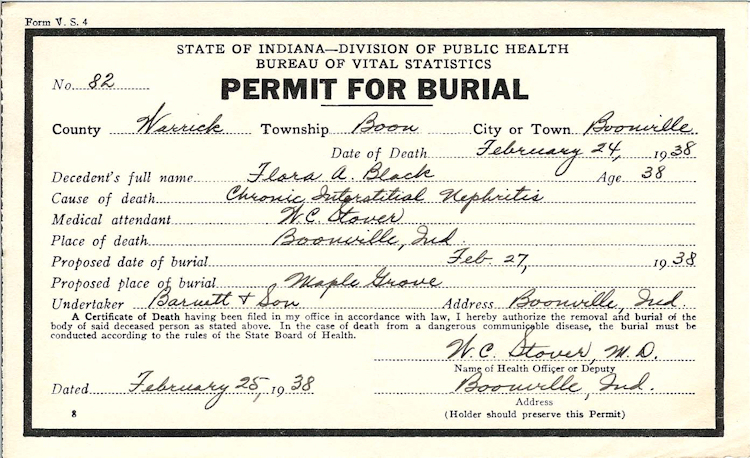 Form V. S. 4
STATE OF INDIANA—DIVISION OF PUBLIC HEALTH
BUREAU OF VITAL STATISTICS
No. 82
PERMIT FOR BURIAL
County Warrick Township Boon City or Town Boonville
Date of Death February 24, 1938
Decedent's full name Flora A. Black Age 38
Cause of death Chronic Interstitial Nephritis
Medical attendant W.C. Stover
Place of death Boonville, Ind.
Proposed date of burial Feb. 27, 1938
Proposed place of burial Maple Grove
Undertaker Barnett & Son Address Boonville, Ind.
A Certificate of Death having been filed in my office in accordance with law, I hereby authorize the removal and burial of the
body of said deceased person as stated above. In the case of death from a dangerous communicable disease, the burial must be
conducted according to the rules of the State Board of Health.
W.C. Stover, M.D.
Name of Health Officer or Deputy
Dated February 25, 1938 Boonville, Ind.
Address
8 (Holder should preserve this Permit)